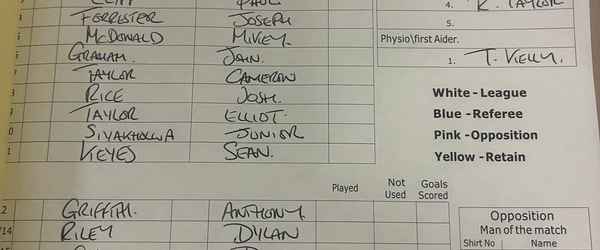 PAUL 4. R. TAYLOR
FORRESTER JOSEPH 5.
MCDONALD MIKEY. Physio\first Aider.
GRAHAM. JOHN. 1. T. KELLY.
7 TAYLOR CAMERON
8 RICE JOSH. White - League
9 TAYLOR ELLIOT. Blue - Referee
0 SIYAKHOLWA JUNIOR Pink - Opposition
1 KEYES SEAN. Yellow - Retain
Played Not Used Goals Scored
2 GRIFFITH. ANTHONY. Opposition
/14 RILEY DYLAN Man of the match
Shirt No Name